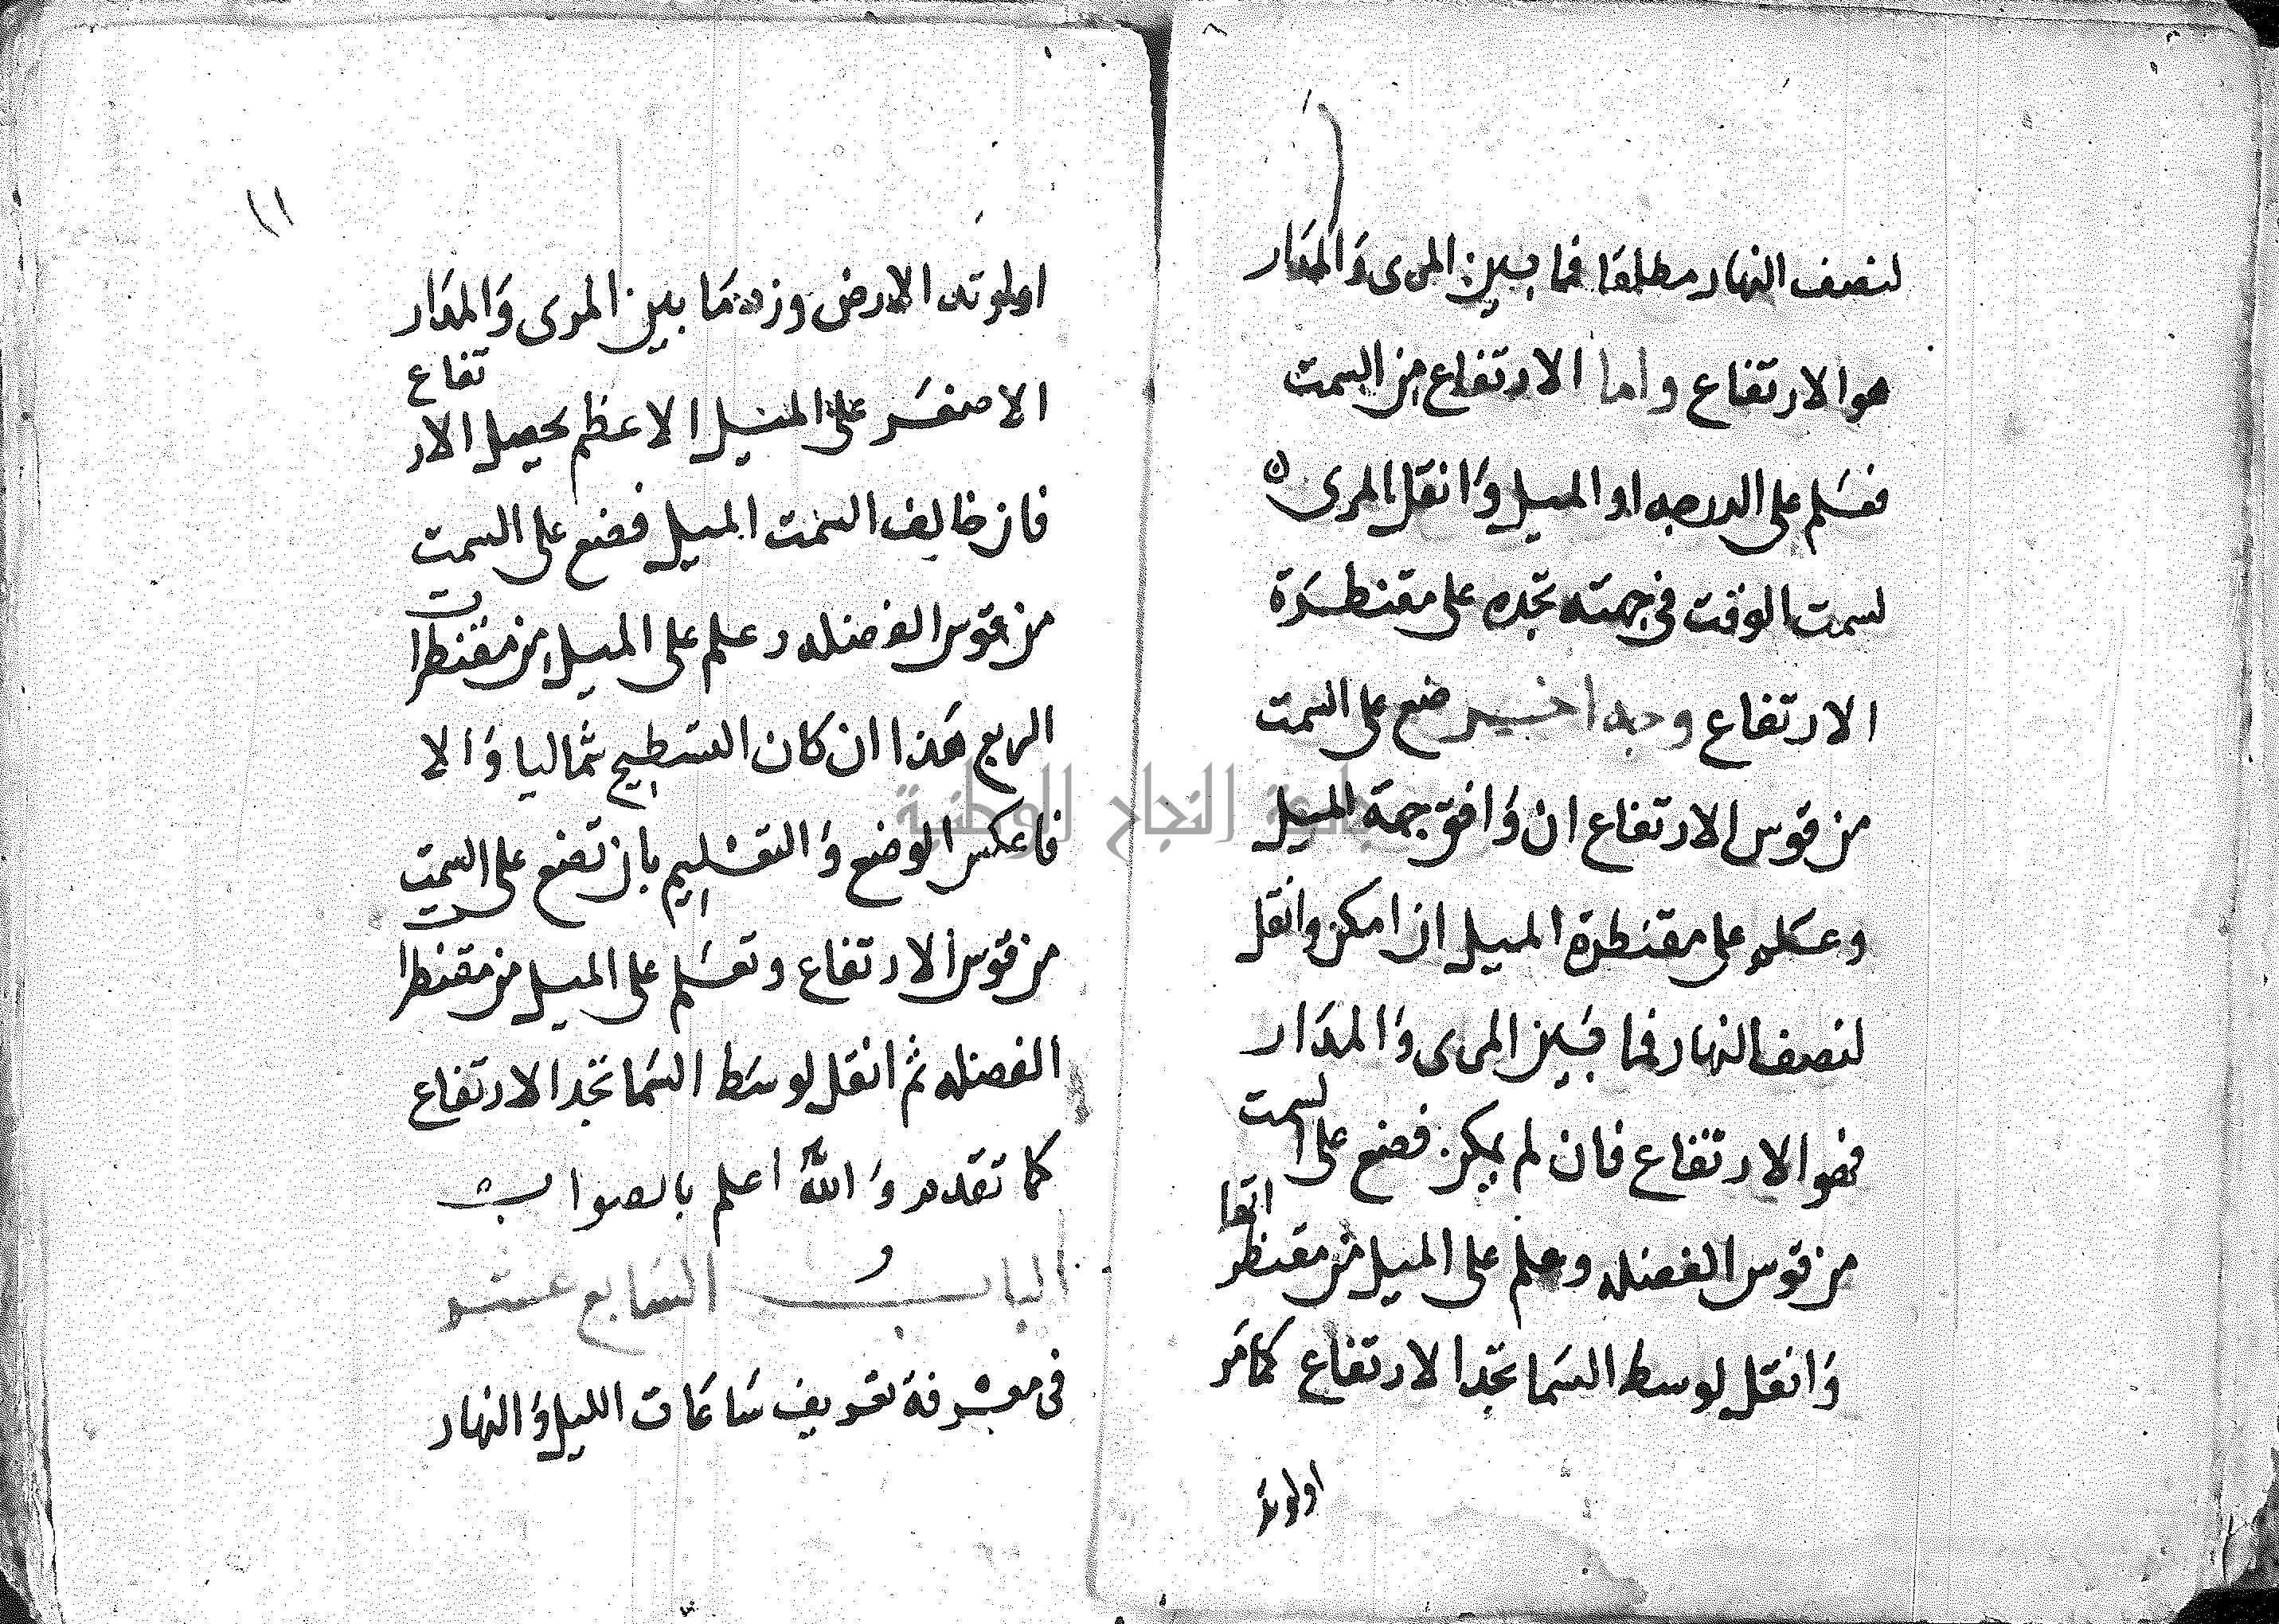 لنصف النهار مطلقا فما بين المرى والمدار
هو الارتفاع واما الارتفاع من السمت
فعلم على الدرجه او الميل وانقل المرى
لسمت الوقت فى جهته تجده على مقنطرة
الارتفاع وجه اخير ضع على السمت
من قوس الارتفاع ان وافق جهة الميل
وعلم على مقنطرة الميل ان امكن وانقل
لنصف النهار فما بين المرى والمدار
فهو الارتفاع فان لم يمكن فضع على السمت
من قوس الفضله وعلم على الميل من مقنطراتها
وانقل لوسط السما تجد الارتفاع كما مر
اولوتد
١١
اولوتد الارض وزد ما بين المرى والمدار
الاصغر على الميل الاعظم يحصل الارتفاع
فان خالف السمت الميل فضع على السمت
من قوس الفضله وعلم على الميل من مقنطرات
الربع هذا ان كان التسطيح شماليا والا
فاعكس الوضع والتعليم بان تضع على السمت
من قوس الارتفاع وتعلم على الميل من مقنطرات
الفضله ثم انقل لوسط السما تجد الارتفاع
كما تقدم والله اعلم بالصواب
الباب السابع عشر
فى معرفة تعريف ساعات الليل والنهار
جامعة النجاح الوطنية